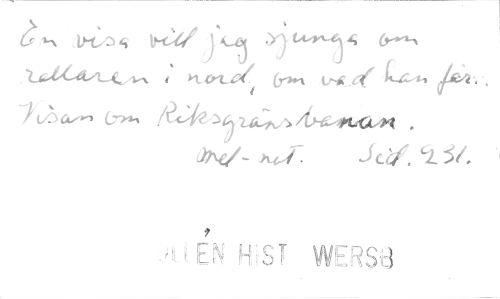 En visa vill jag sjunga om
rallaren i nord, om vad han får..
Visan om Riksgränsbanan.
mel-not. Sid. 231.
LLÉN HIST WERSB